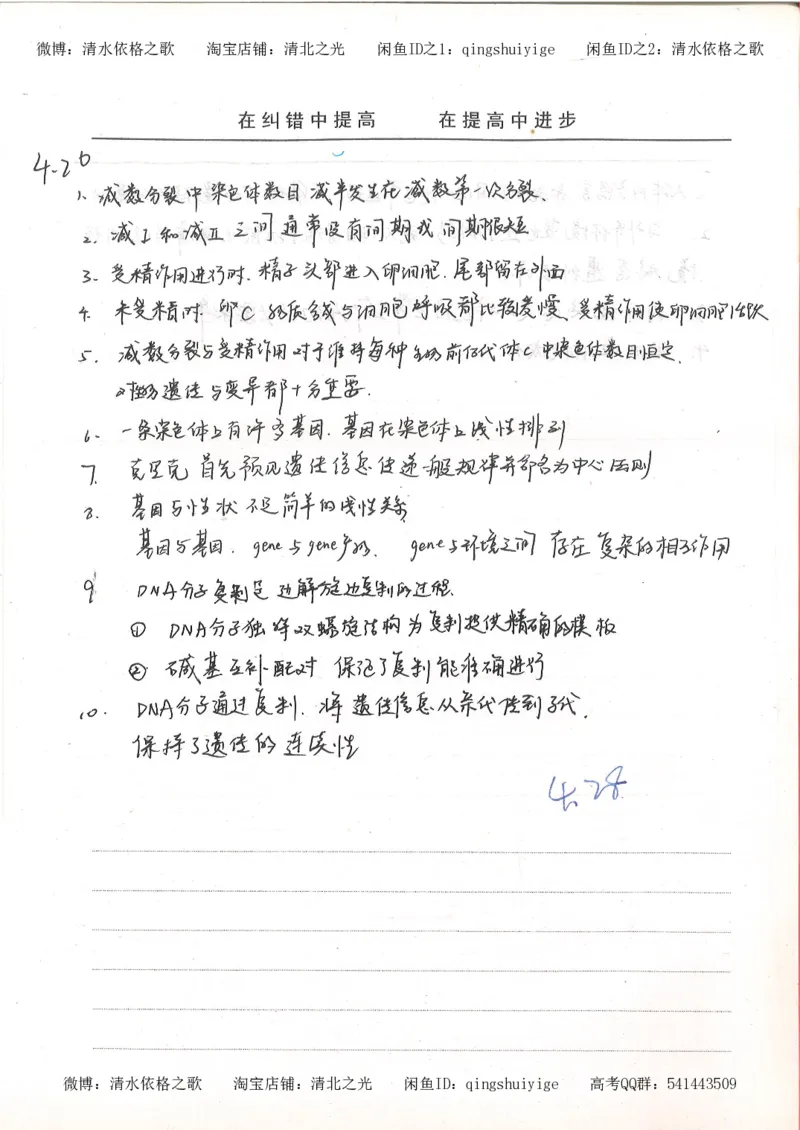 微博：清水依格之歌 淘宝店铺：清北之光 闲鱼ID之1：qingshuiyige 闲鱼ID之2：清水依格之歌
在纠错中提高 在提高中进步
4-26
1、减数分裂中染色体数目减半发生在减数第一次分裂.
2. 减Ⅰ和减Ⅱ之间通常没有间期或间期很短
3. 受精作用进行时.精子头部进入卵细胞.尾部留在外面
4. 未受精时.卵C物质合成与细胞呼吸都比较缓慢、受精作用使卵细胞活跃
5. 减数分裂与受精作用对于维持每种生物前后代体C中染色体数目恒定.
对生物遗传与变异都十分重要.
6. 一条染色体上有许多基因.基因在染色体上线性排列
7. 克里克首先预见遗传信息传递一般规律并命名为中心法则
8. 基因与性状不是简单的线性关系
基因与基因. gene与gene产物. gene与环境之间 存在复杂的相互作用
9 DNA分子复制是边解旋边复制的过程.
① DNA分子独特双螺旋结构为复制提供精确的模板
② 碱基互补配对 保证了复制能准确进行
10. DNA分子通过复制.将遗传信息从亲代传到子代.
保持了遗传的连续性
4.28
微博：清水依格之歌 淘宝店铺：清北之光 闲鱼ID：qingshuiyige 高考QQ群：541443509